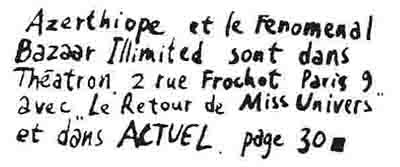 Azerthiope et le Fenomenal
Bazaar Illimited sont dans
Théatron. 2 rue Frochot Paris 9
avec "Le Retour de Miss Univers"
et dans ACTUEL. page 30■